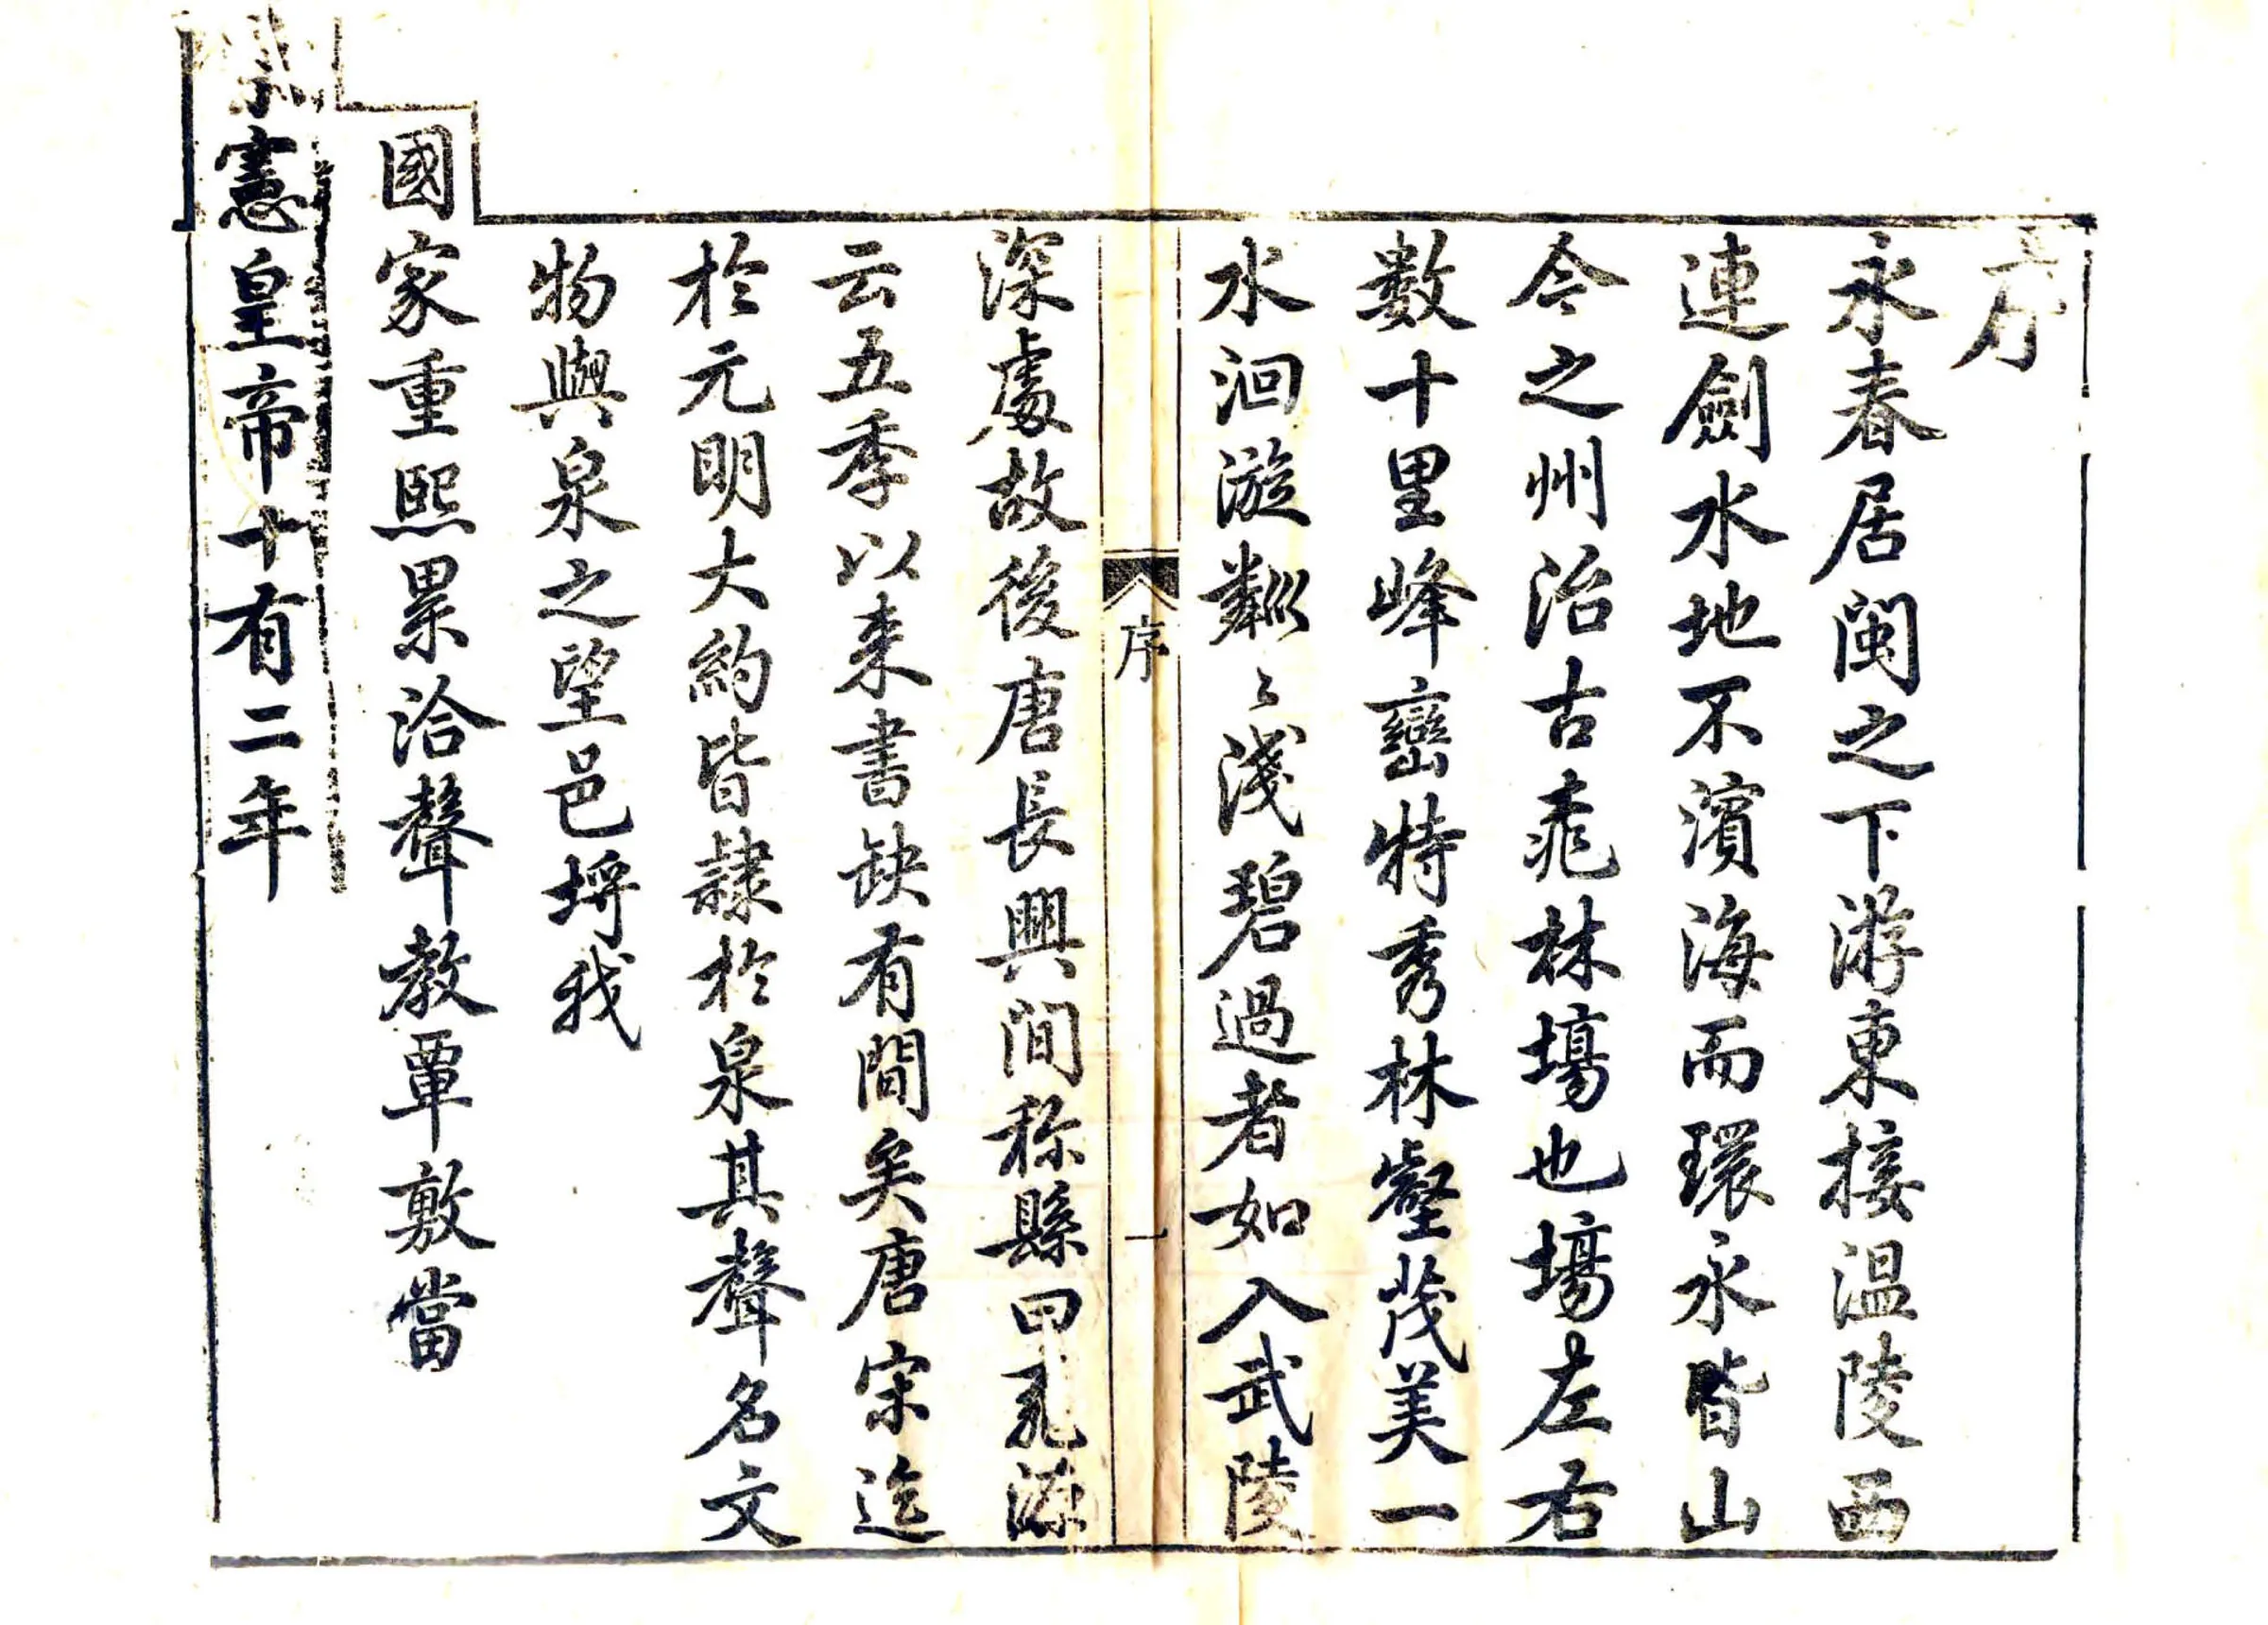 序
永春居閩之下游東接温陵西
連劍水地不濱海而環永皆山
今之州治古桃林塲也塲左右
數十里峰巒特秀林壑茂美一
水洄漩粼々淺碧過者如入武陵
序
一
深處故後唐長興間称縣曰桃源
云五季以來書缺有間矣唐宋迄
於元明大約皆隷於泉其聲名文
物與泉之望邑埒我
國家重熙累洽聲教覃敷當
憲皇帝十有二年